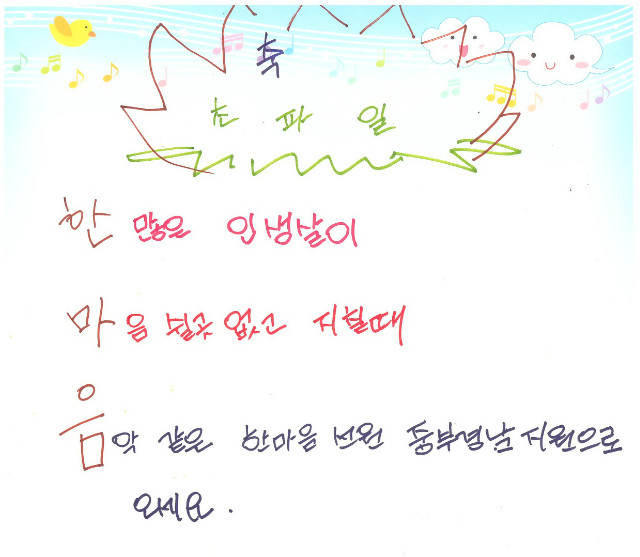 축
초 파 일
한 많은 인생살이
마음 쉴곳 없고 지칠때
음악 같은 한마음 선원 중부경남 지원으로
오세요.